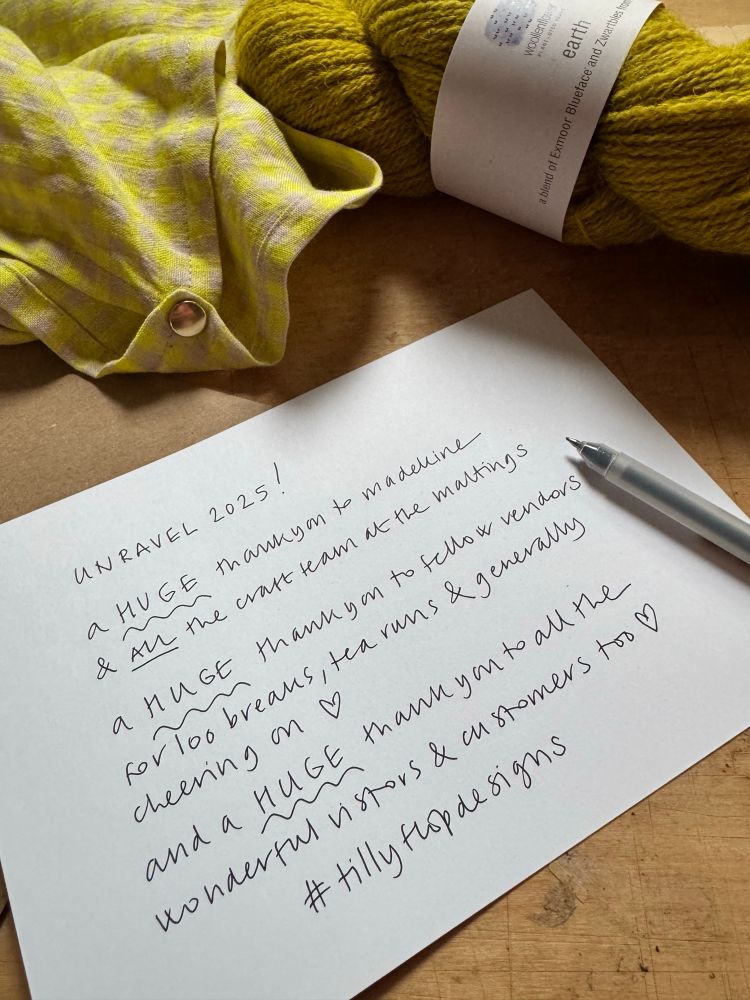 woollenflower
earth
a blend of Exmoor Blueface and Zwartbles from
UNRAVEL 2025!
a HUGE thankyou to madeleine
& ALL the craft team at the maltings
a HUGE thankyou to fellow vendors
for loo breaks, tea runs & generally
cheering on ♡
and a HUGE thank you to all the
wonderful vistors & customers too ♡
#tillyflopdesigns